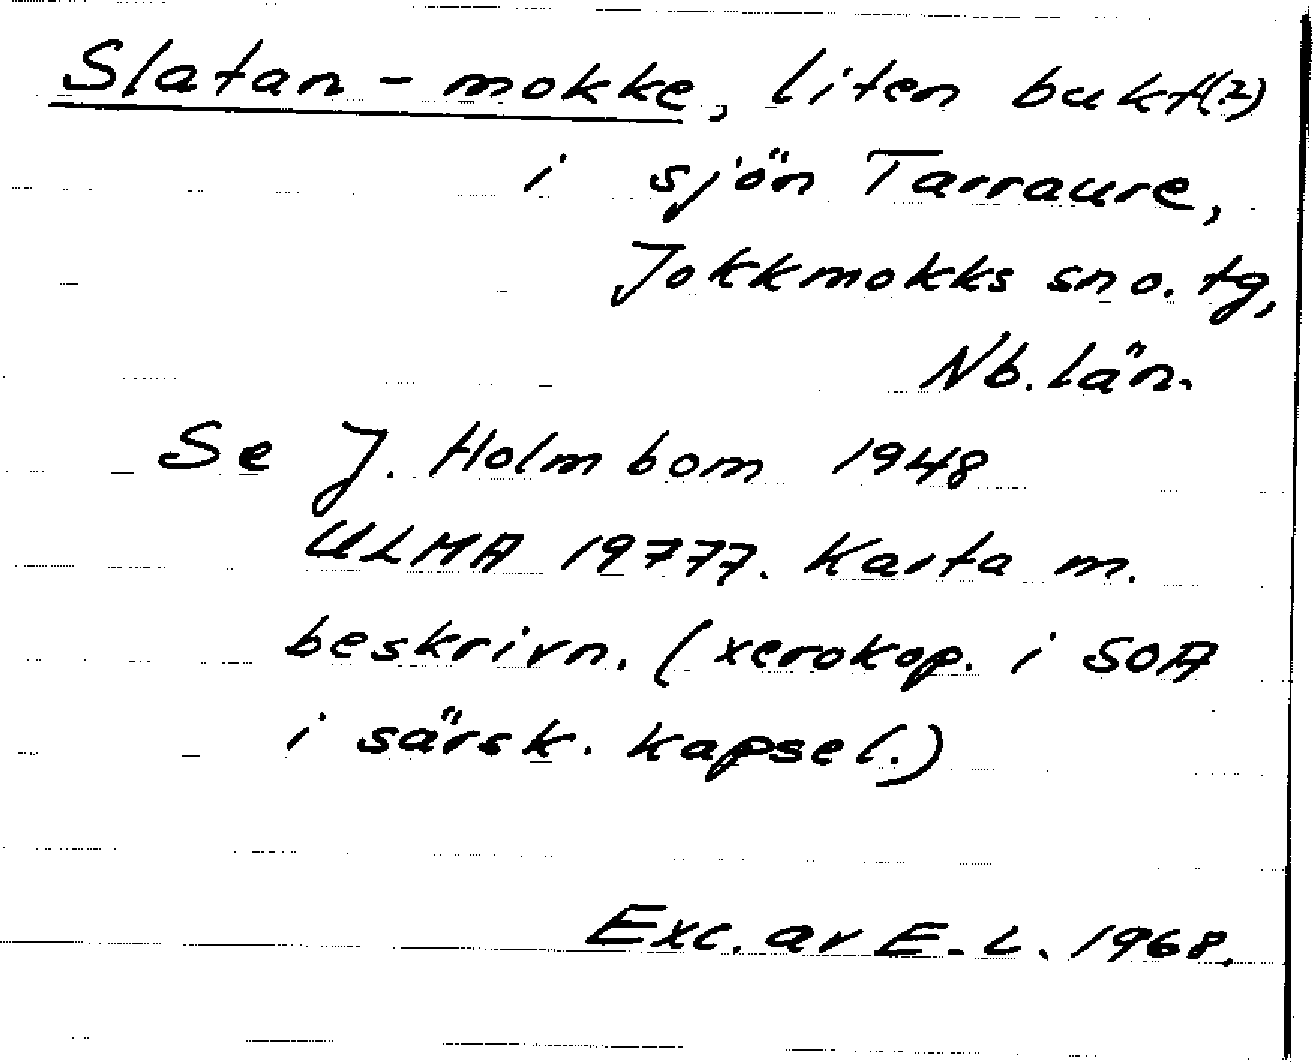 Slatan - mokke, liten bukt(?)
i sjön Tarraure,
Jokkmokks sn o. tg,
Nb. län.
Se J. Holmbom 1948
ULMA 19777. Karta m.
beskrivn. (xerokop. i SOA
i särsk. kapsel.)
Exc. av E. L. 1968.